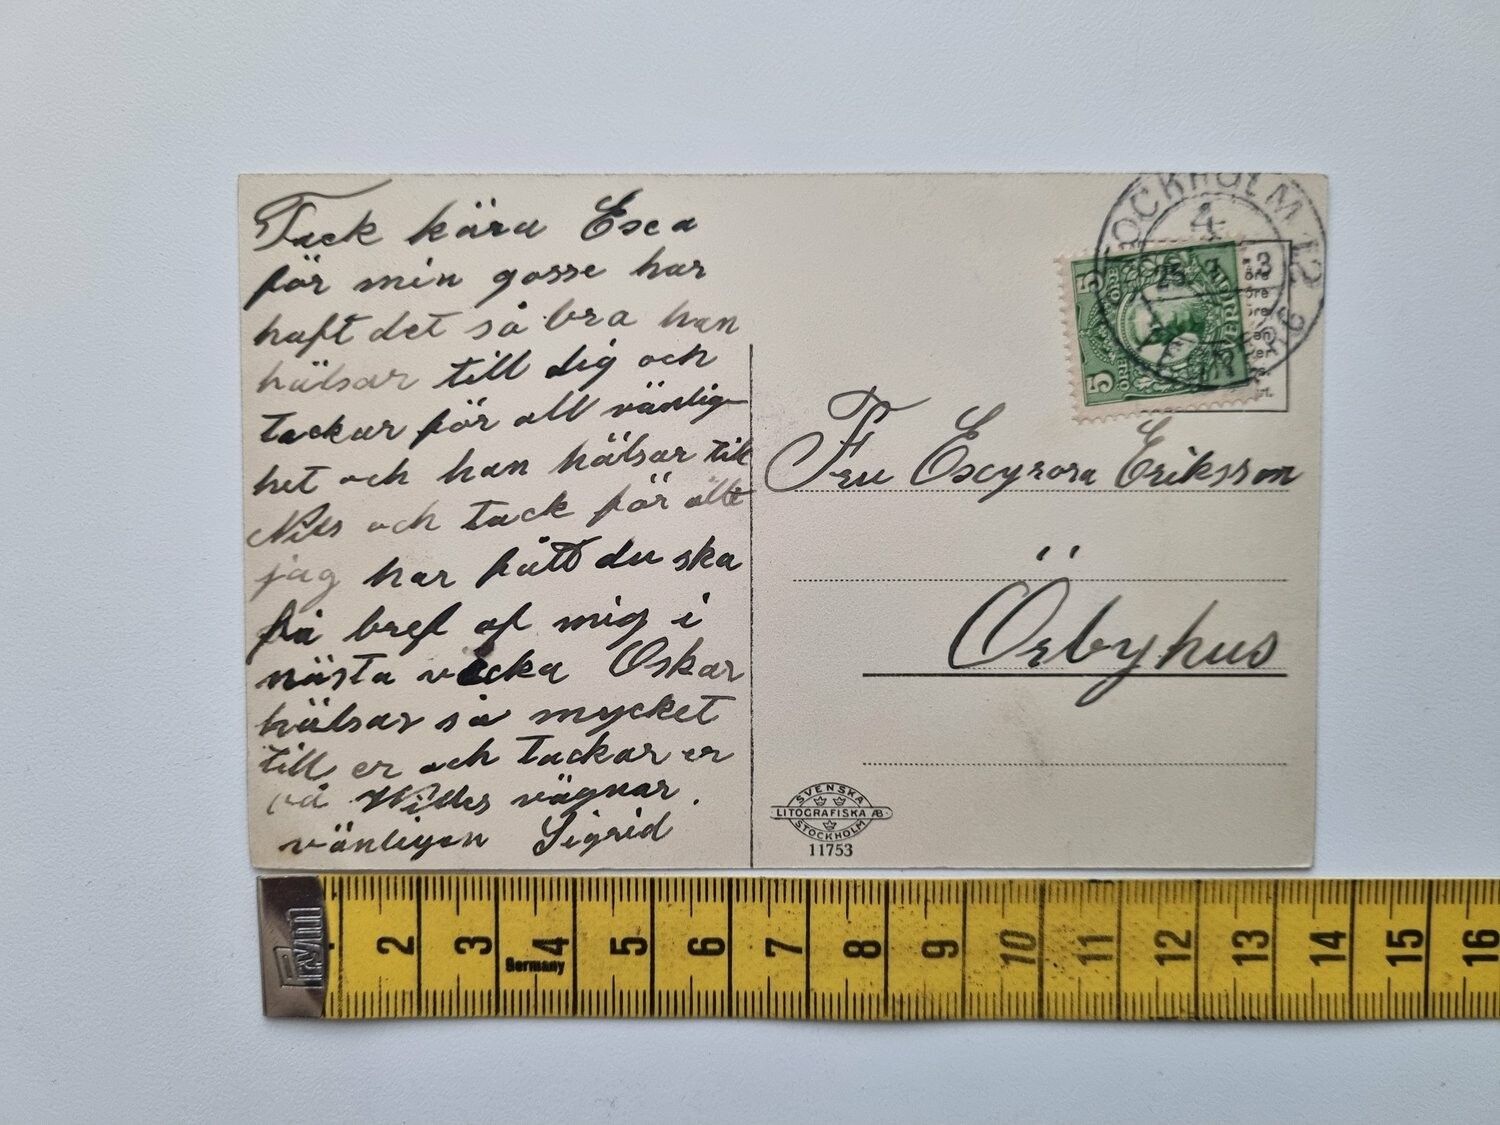 Tack kära Esca
för min gosse har
haft det så bra han
hälsar till dig och
tackar för all vänlig
het och han hälsar till
Nils och tack för allt
jag har fått du ska
få bref af mig i
nästa vecka Oskar
hälsar så mycket
till er och tackar er
på Willes vägnar.
vänligen Sigrid
STOCKHOLM 12
4
23
5 ÖRE
SVERIGE
5 ÖRE
Fru Escyrora Eriksson
Örbyhus
SVENSKA
LITOGRAFISKA AB
STOCKHOLM
11753
Prym
Germany
2 3 4 5 6 7 8 9 10 11 12 13 14 15 16